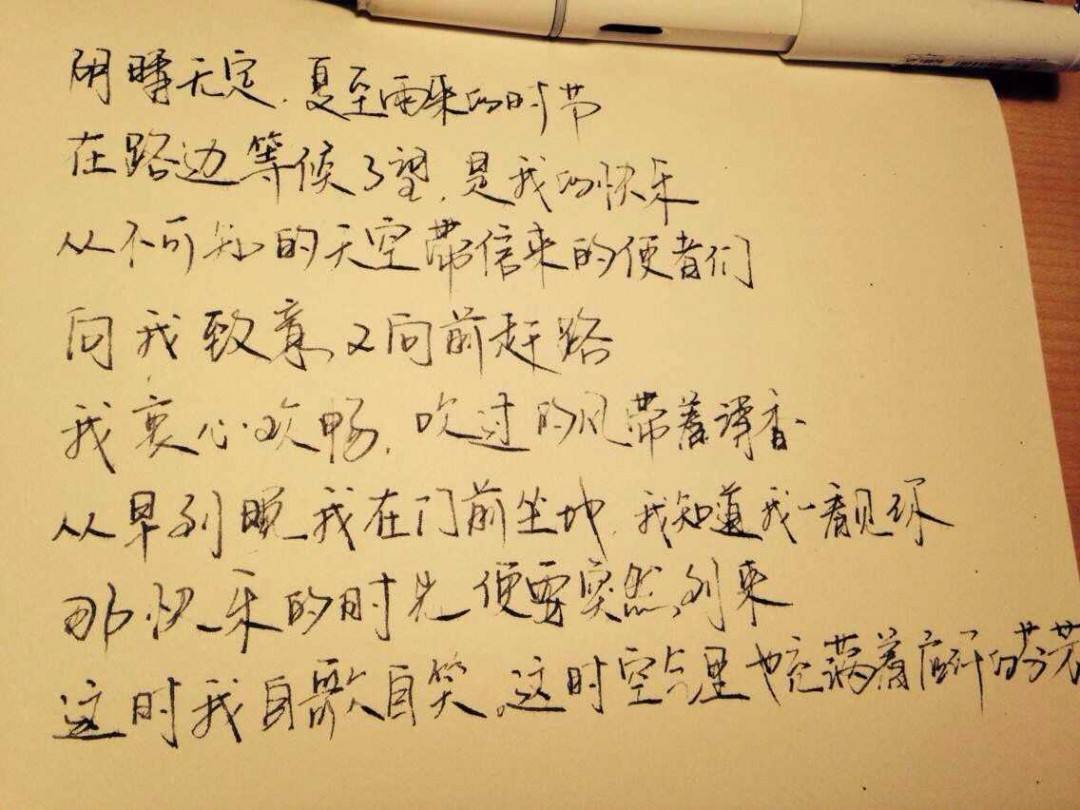 阴晴无定，夏至雨来的时节
在路边等候了望，是我的快乐
从不可知的天空带信来的使者们
向我致意又向前赶路
我衷心欢畅，吹过的风带着清香
从早到晚我在门前坐地，我知道我一看见你
那快乐的时光便要突然到来
这时我自歌自笑，这时空气里也充满着应许的芬芳